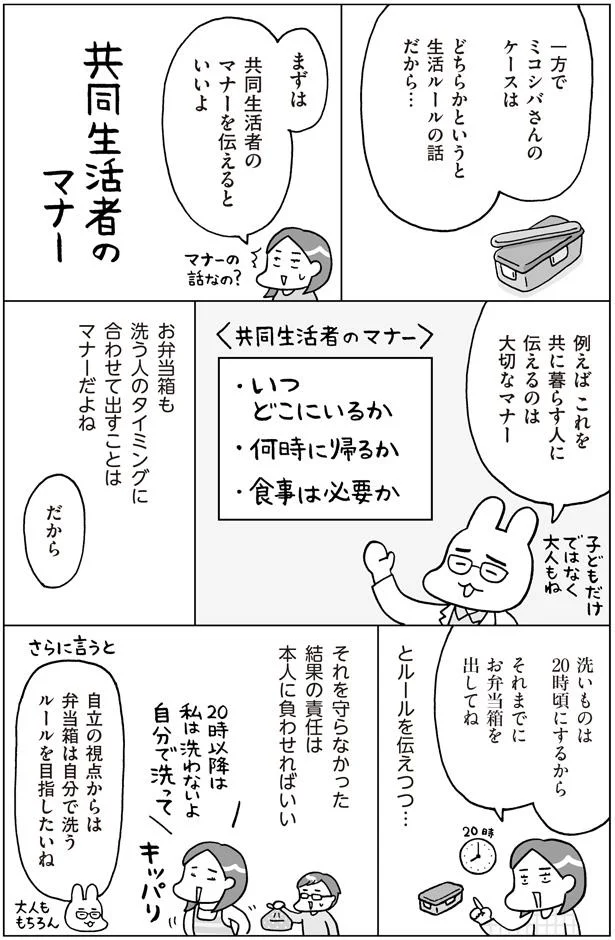 一方で
ミコシバさんの
ケースは
どちらかというと
生活ルールの話
だから…
まずは
共同生活者の
マナーを伝えると
いいよ
マナーの
話なの？
共同生活者の
マナー
例えば これを
共に暮らす人に
伝えるのは
大切なマナー
子どもだけ
ではなく
大人もね
〈共同生活者のマナー〉
・いつ
どこにいるか
・何時に帰るか
・食事は必要か
お弁当箱も
洗う人のタイミングに
合わせて出すことは
マナーだよね
だから
洗いものは
20時頃にするから
それまでに
お弁当箱を
出してね
20時
とルールを伝えつつ…
それを守らなかった
結果の責任は
本人に負わせればいい
20時以降は
私は洗わないよ
自分で洗って
キッパリ
さらに言うと
自立の視点からは
弁当箱は自分で洗う
ルールを目指したいね
大人も
もちろん